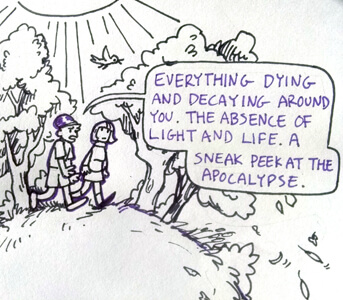 EVERYTHING DYING
AND DECAYING AROUND
YOU. THE ABSENCE OF
LIGHT AND LIFE. A
SNEAK PEEK AT THE
APOCALYPSE.